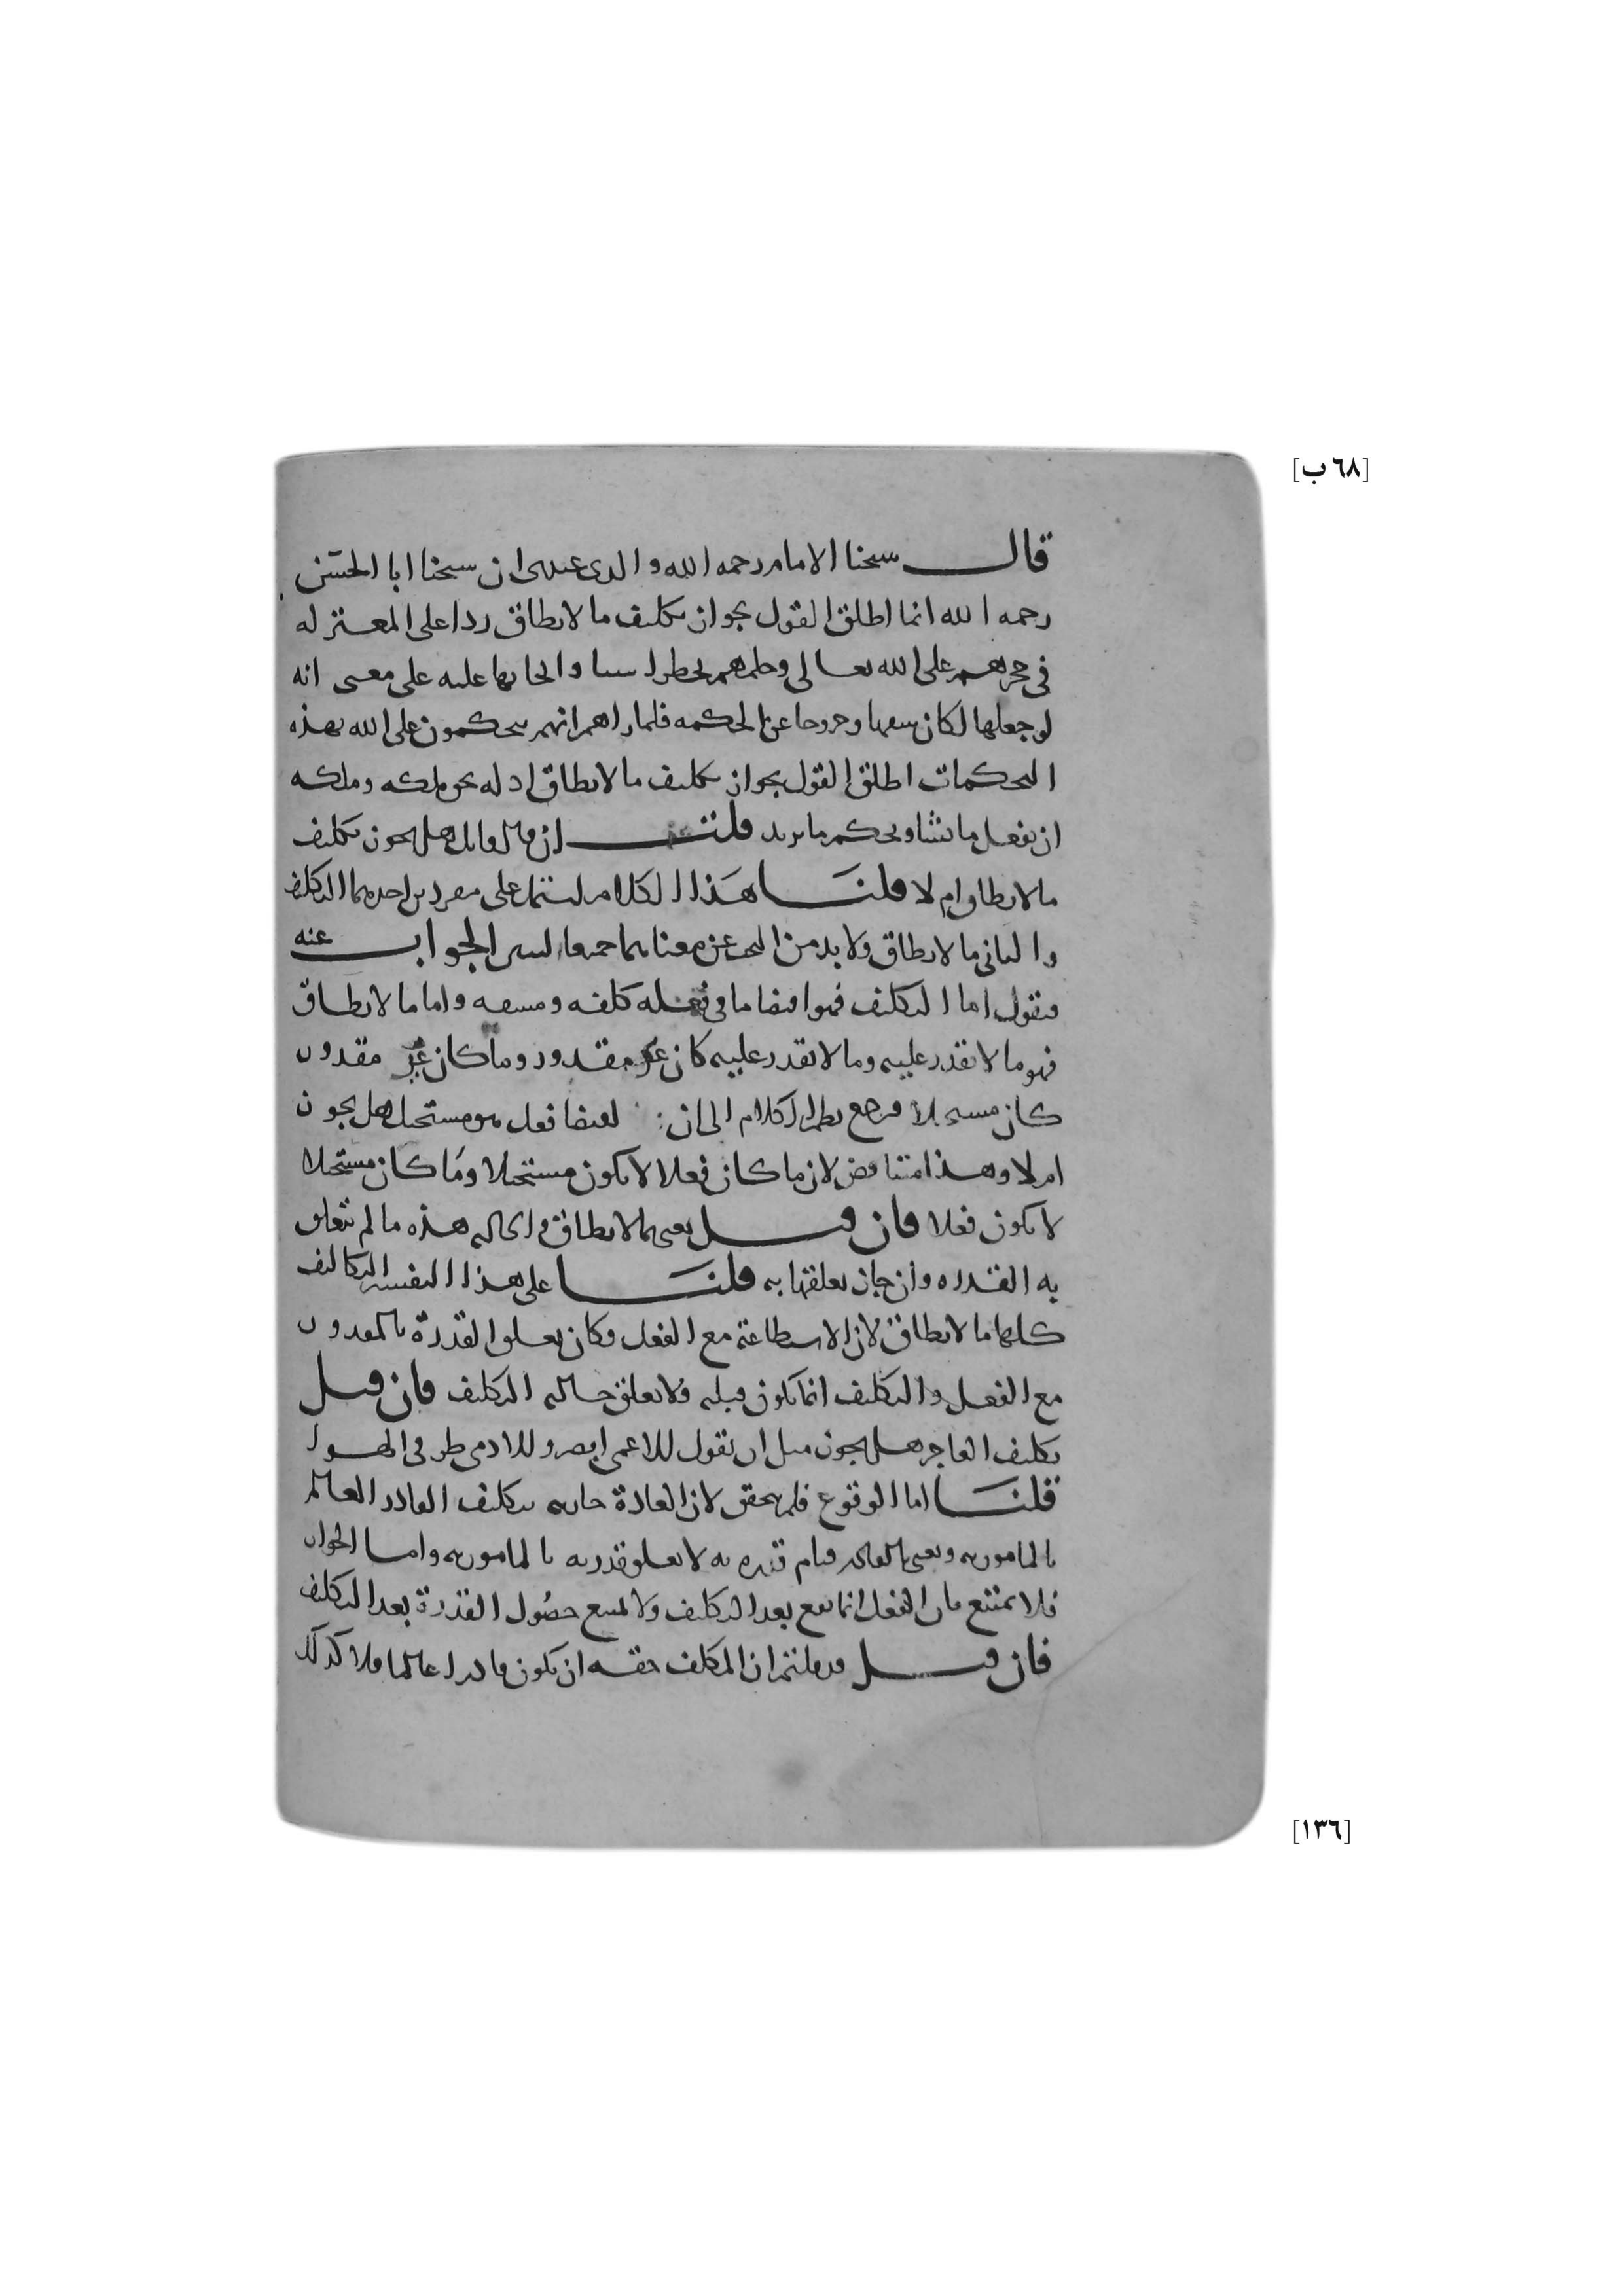 [٦٨ ب]
قال شيخنا الامام رحمه الله والذى عندى ان شيخنا ابا الحسن
رحمه الله انما اطلق القول بجواز تكليف ما لا يطاق ردا على المعتزله
فى على الله تعالى اشيا وايجابها عليه على معنى انه
لو جعلها لكان سفها وخروجا عن الحكمه فلما راهم انهم يحكمون على الله بهذه
التحكمات اطلق القول بجواز تكليف ما لا يطاق اذ له بحق ملكه وملكه
ان يفعل ما يشا ويحكم ما يريد قلت ان قال قايل هل يجوز تكليف
ما لا يطاق ام لا قلنا هذا الكلام يشتمل على مفردين احدهما التكليف
والثانى ما لا يطاق ولا بد من البحث عن معناهما جميعا ليتبين الجواب عنه
فنقول اما التكليف فهو اقتضا ما فى فعله كلفه ومشقه واما ما لا يطاق
فهو ما لا يقدر عليه وما لا يقدر عليه كان غير مقدور وما كان غير مقدور
كان مستحيلا فرجع الكلام الى ان اقتضا فعل هو مستحيل هل يجوز
ام لا وهذا متناقض لان ما كان فعلا لا يكون مستحيلا وما كان مستحيلا
لا يكون فعلا فان قيل يعنى بما لا يطاق والحاله هذه ما لم تتعلق
به القدره وان جاز تعلقها به قلنا على هذا التفسير التكاليف
كلها ما لا يطاق لان الاستطاعة مع الفعل وكان تعلق القدرة بالمقدور
مع الفعل والتكليف انما يكون قبله ولا تعلق حالة التكليف فان قيل
تكليف العاجز هل يجوز مثل ان نقول للاعمى ابصر وللادمى طر فى الهوا
قلنا اما الوقوع فلم يتحقق لان العادة جاريه بتكليف القادر العالم
بالمامور به ويعنى بالقادر قيام قدره به لا تعلق قدرته بالمامور به واما الجواز
فلا يمتنع فان الفعل انما يقع بعد التكليف ولا يمتنع حصول القدرة بعد التكليف
فان قيل قد قلتم ان المكلف حقه ان يكون قادرا عالما
[١٣٦]